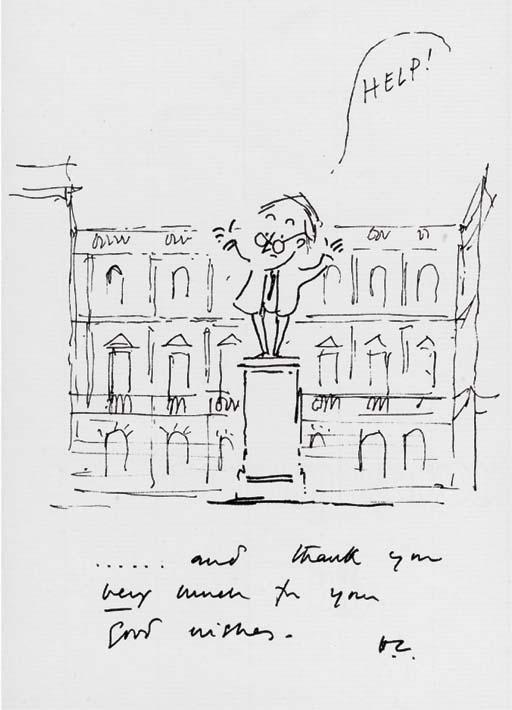 HELP!
...... and thank you
very much for your
good wishes.